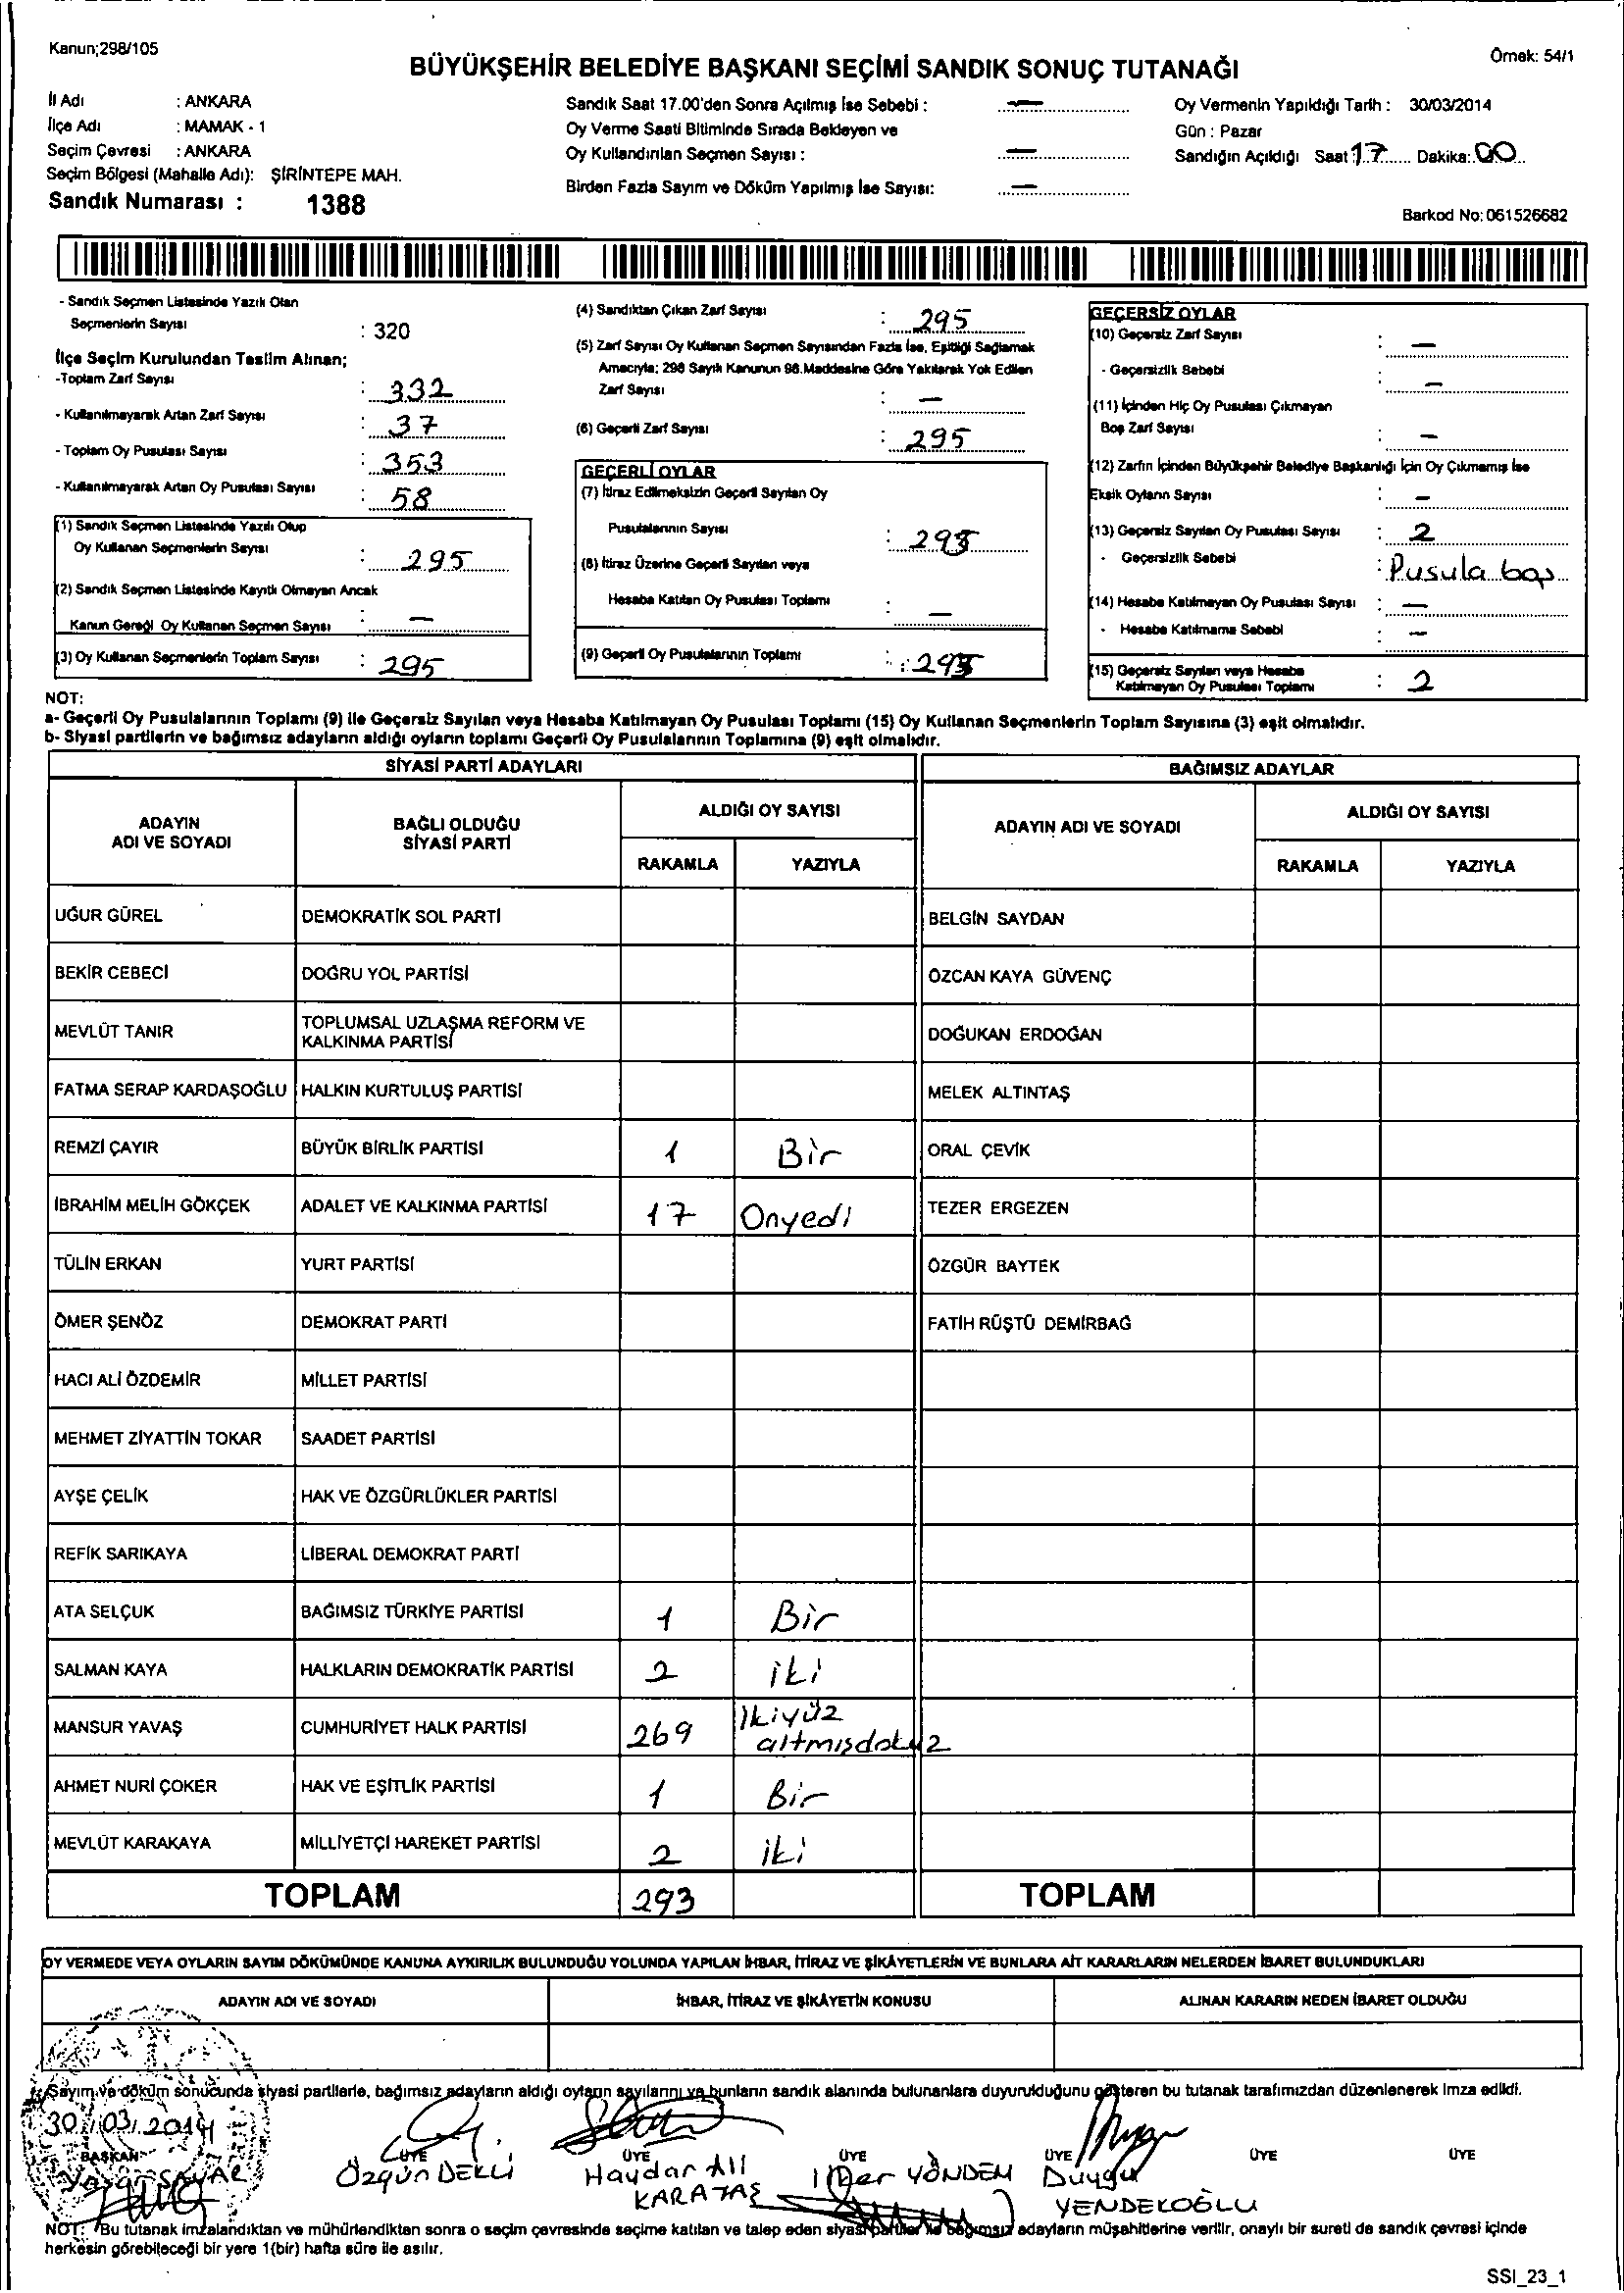 Kanun;298/105
Örnek: 54/1
BÜYÜKŞEHİR BELEDİYE BAŞKANI SEÇİMİ SANDIK SONUÇ TUTANAĞI
İl Adı : ANKARA
İlçe Adı : MAMAK - 1
Seçim Çevresi : ANKARA
Seçim Bölgesi (Mahalle Adı): ŞİRİNTEPE MAH.
Sandık Numarası : 1388
Sandık Saat 17.00'den Sonra Açılmış İse Sebebi : —
Oy Verme Saati Bitiminde Sırada Bekleyen ve
Oy Kullandırılan Seçmen Sayısı : —
Birden Fazla Sayım ve Döküm Yapılmış İse Sayısı: —
Oy Vermenin Yapıldığı Tarih : 30/03/2014
Gün : Pazar
Sandığın Açıldığı Saat 17 Dakika: 00
Barkod No: 061526682
- Sandık Seçmen Listesinde Yazılı Olan
Seçmenlerin Sayısı : 320
İlçe Seçim Kurulundan Teslim Alınan;
-Toplam Zarf Sayısı : 332
- Kullanılmayarak Artan Zarf Sayısı : 37
- Toplam Oy Pusulası Sayısı : 353
- Kullanılmayarak Artan Oy Pusulası Sayısı : 58
(1) Sandık Seçmen Listesinde Yazılı Olup
Oy Kullanan Seçmenlerin Sayısı : 295
(2) Sandık Seçmen Listesinde Kayıtlı Olmayan Ancak
Kanun Gereği Oy Kullanan Seçmen Sayısı : —
(3) Oy Kullanan Seçmenlerin Toplam Sayısı : 295
(4) Sandıktan Çıkan Zarf Sayısı : 295
(5) Zarf Sayısı Oy Kullanan Seçmen Sayısından Fazla İse, Eşitliği Sağlamak
Amacıyla; 298 Sayılı Kanunun 98.Maddesine Göre Yakılarak Yok Edilen
Zarf Sayısı : —
(6) Geçerli Zarf Sayısı : 295
GEÇERLİ OYLAR
(7) İtiraz Edilmeksizin Geçerli Sayılan Oy
Pusulalarının Sayısı : 293
(8) İtiraz Üzerine Geçerli Sayılan veya
Hesaba Katılan Oy Pusulası Toplamı : —
(9) Geçerli Oy Pusulalarının Toplamı : 293
GEÇERSİZ OYLAR
(10) Geçersiz Zarf Sayısı : —
- Geçersizlik Sebebi : —
(11) İçinden Hiç Oy Pusulası Çıkmayan
Boş Zarf Sayısı : —
(12) Zarfın İçinden Büyükşehir Belediye Başkanlığı İçin Oy Çıkmamış İse
Eksik Oyların Sayısı : —
(13) Geçersiz Sayılan Oy Pusulası Sayısı : 2
- Geçersizlik Sebebi : Pusula boş
(14) Hesaba Katılmayan Oy Pusulası Sayısı : —
- Hesaba Katılmama Sebebi : —
(15) Geçersiz Sayılan veya Hesaba
Katılmayan Oy Pusulası Toplamı : 2
NOT:
a- Geçerli Oy Pusulalarının Toplamı (9) ile Geçersiz Sayılan veya Hesaba Katılmayan Oy Pusulası Toplamı (15) Oy Kullanan Seçmenlerin Toplam Sayısına (3) eşit olmalıdır.
b- Siyasi partilerin ve bağımsız adayların aldığı oyların toplamı Geçerli Oy Pusulalarının Toplamına (9) eşit olmalıdır.
SİYASİ PARTİ ADAYLARI BAĞIMSIZ ADAYLAR
ADAYIN ADI VE SOYADI BAĞLI OLDUĞU SİYASİ PARTİ ALDIĞI OY SAYISI ADAYIN ADI VE SOYADI ALDIĞI OY SAYISI
RAKAMLA YAZIYLA RAKAMLA YAZIYLA
UĞUR GÜREL DEMOKRATİK SOL PARTİ BELGİN SAYDAN
BEKİR CEBECİ DOĞRU YOL PARTİSİ ÖZCAN KAYA GÜVENÇ
MEVLÜT TANIR TOPLUMSAL UZLAŞMA REFORM VE KALKINMA PARTİSİ DOĞUKAN ERDOĞAN
FATMA SERAP KARDAŞOĞLU HALKIN KURTULUŞ PARTİSİ MELEK ALTINTAŞ
REMZİ ÇAYIR BÜYÜK BİRLİK PARTİSİ 1 Bir ORAL ÇEVİK
İBRAHİM MELİH GÖKÇEK ADALET VE KALKINMA PARTİSİ 17 Onyedi TEZER ERGEZEN
TÜLİN ERKAN YURT PARTİSİ ÖZGÜR BAYTEK
ÖMER ŞENÖZ DEMOKRAT PARTİ FATİH RÜŞTÜ DEMİRBAĞ
HACI ALİ ÖZDEMİR MİLLET PARTİSİ
MEHMET ZİYATTİN TOKAR SAADET PARTİSİ
AYŞE ÇELİK HAK VE ÖZGÜRLÜKLER PARTİSİ
REFİK SARIKAYA LİBERAL DEMOKRAT PARTİ
ATA SELÇUK BAĞIMSIZ TÜRKİYE PARTİSİ 1 Bir
SALMAN KAYA HALKLARIN DEMOKRATİK PARTİSİ 2 iki
MANSUR YAVAŞ CUMHURİYET HALK PARTİSİ 269 İkiyüz altmışdokuz
AHMET NURİ ÇOKER HAK VE EŞİTLİK PARTİSİ 1 Bir
MEVLÜT KARAKAYA MİLLİYETÇİ HAREKET PARTİSİ 2 iki
TOPLAM 293 TOPLAM
OY VERMEDE VEYA OYLARIN SAYIM DÖKÜMÜNDE KANUNA AYKIRILIK BULUNDUĞU YOLUNDA YAPILAN İHBAR, İTİRAZ VE ŞİKÂYETLERİN VE BUNLARA AİT KARARLARIN NELERDEN İBARET BULUNDUKLARI
ADAYIN ADI VE SOYADI İHBAR, İTİRAZ VE ŞİKÂYETİN KONUSU ALINAN KARARIN NEDEN İBARET OLDUĞU
Sayım ve döküm sonucunda siyasi partilerle, bağımsız adayların aldığı oyların sayılarını ve bunların sandık alanında bulunanlara duyurulduğunu gösteren bu tutanak tarafımızdan düzenlenerek imza edildi.
30/03/2014
BAŞKAN ÜYE ÜYE ÜYE ÜYE ÜYE ÜYE
Yaşar SAYAR Özgün DEKLİ Haydar Ali KARATAŞ İlter YÖNDEM Duygu YENDEKOĞLU
NOT: Bu tutanak imzalandıktan ve mühürlendikten sonra o seçim çevresinde seçime katılan ve talep eden siyasi partiler ile bağımsız adayların müşahitlerine verilir, onaylı bir sureti de sandık çevresi içinde
herkesin görebileceği bir yere 1(bir) hafta süre ile asılır.
SSI_23_1